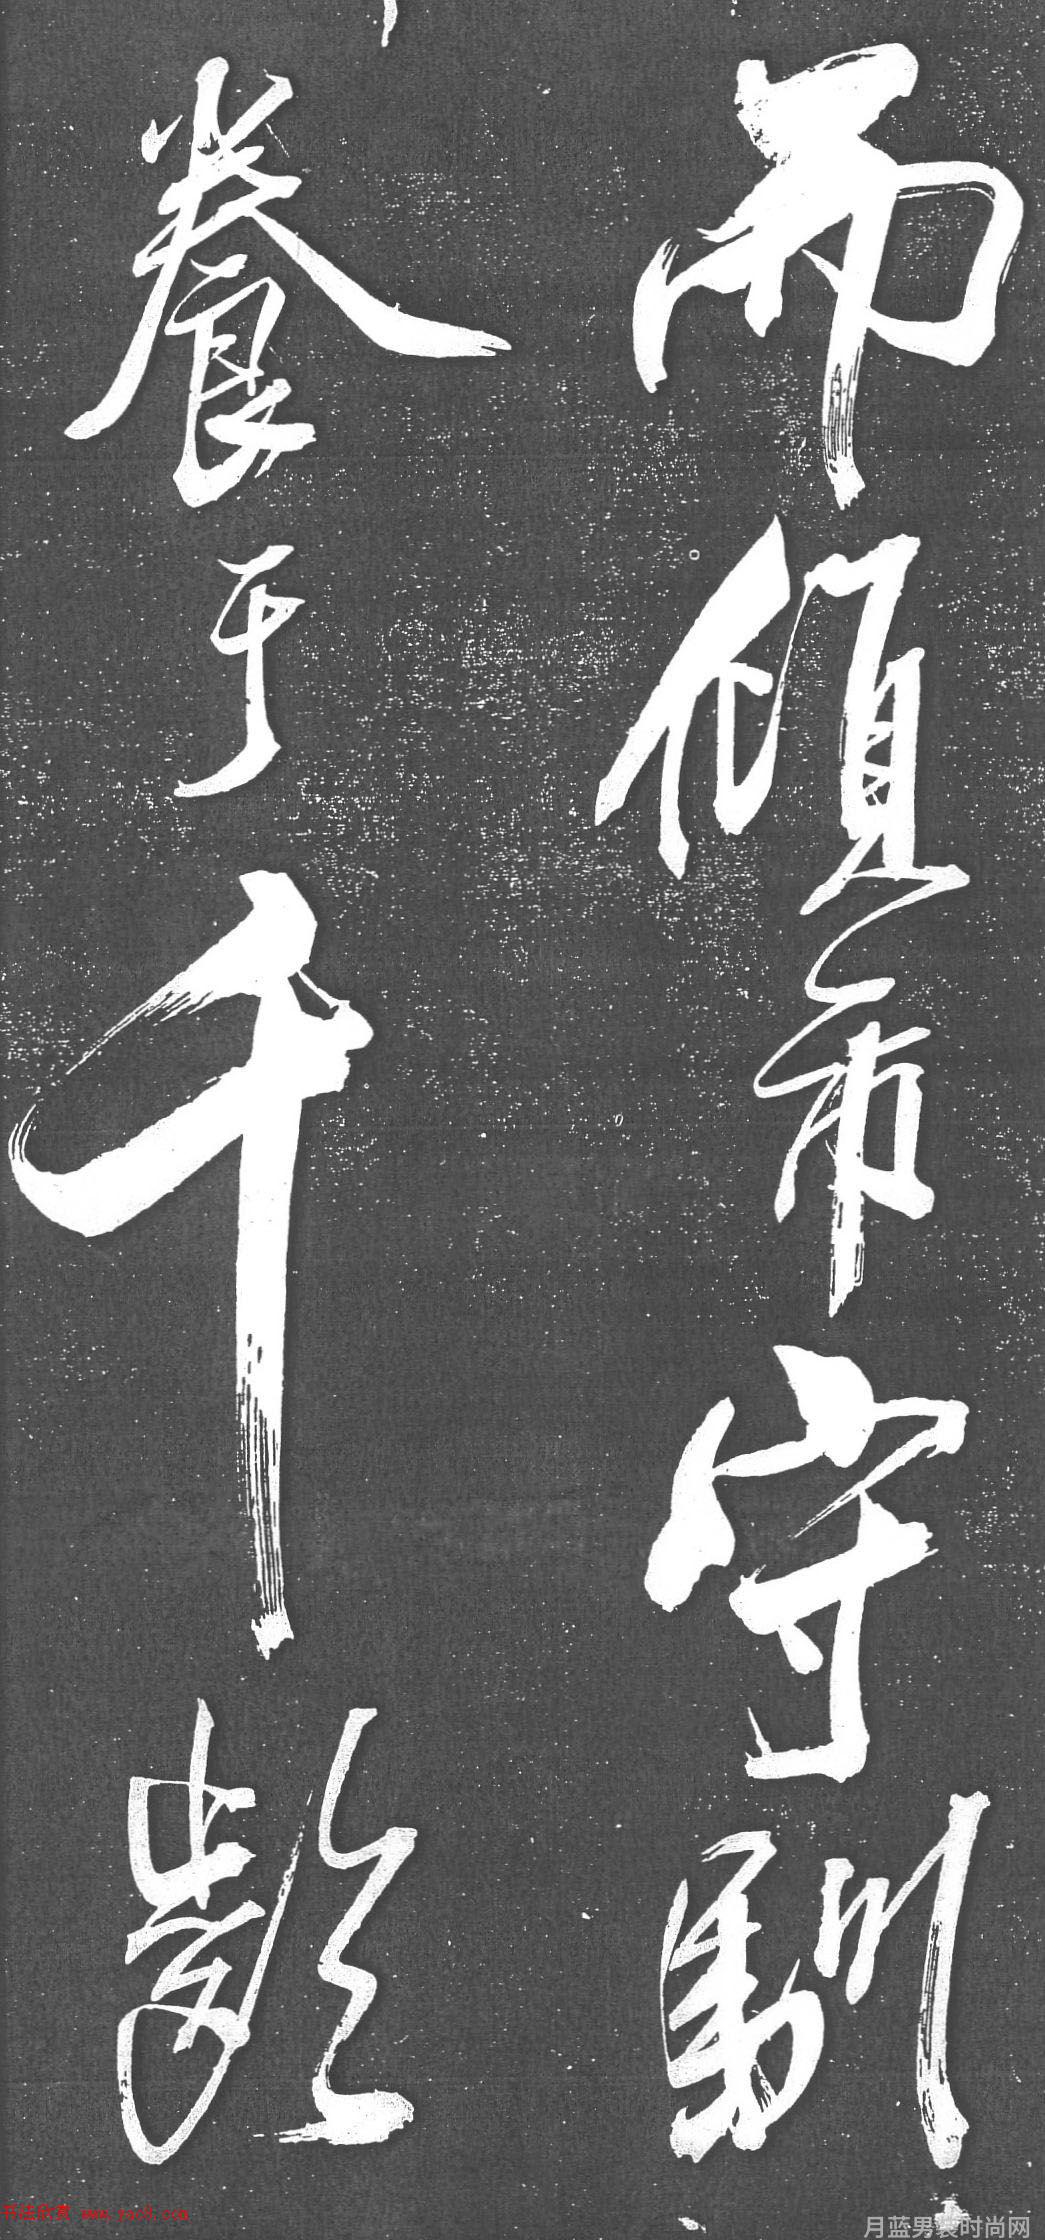 而傾市守馴
養于千齡
书法欣赏 www.yac8.com
月蓝男装时尚网